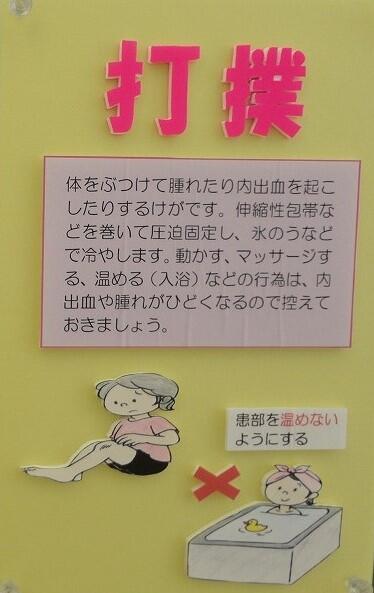 打撲
体をぶつけて腫れたり内出血を起こ
したりするけがです。伸縮性包帯な
どを巻いて圧迫固定し、氷のうなど
で冷やします。動かす、マッサージす
る、温める（入浴）などの行為は、内
出血や腫れがひどくなるので控えて
おきましょう。
患部を温めない
ようにする